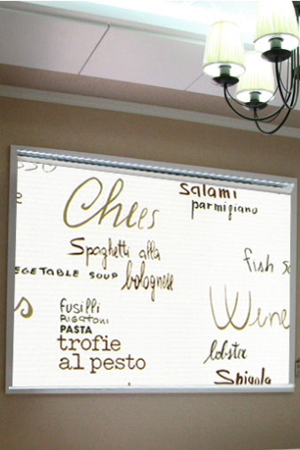 Salami
parmigiano
Chees
Spaghetti alla
bolognese
fish
EGETABLE SOUP
Wine
fusilli
RIGATONI
PASTA
trofie
al pesto
lobster
Spigola